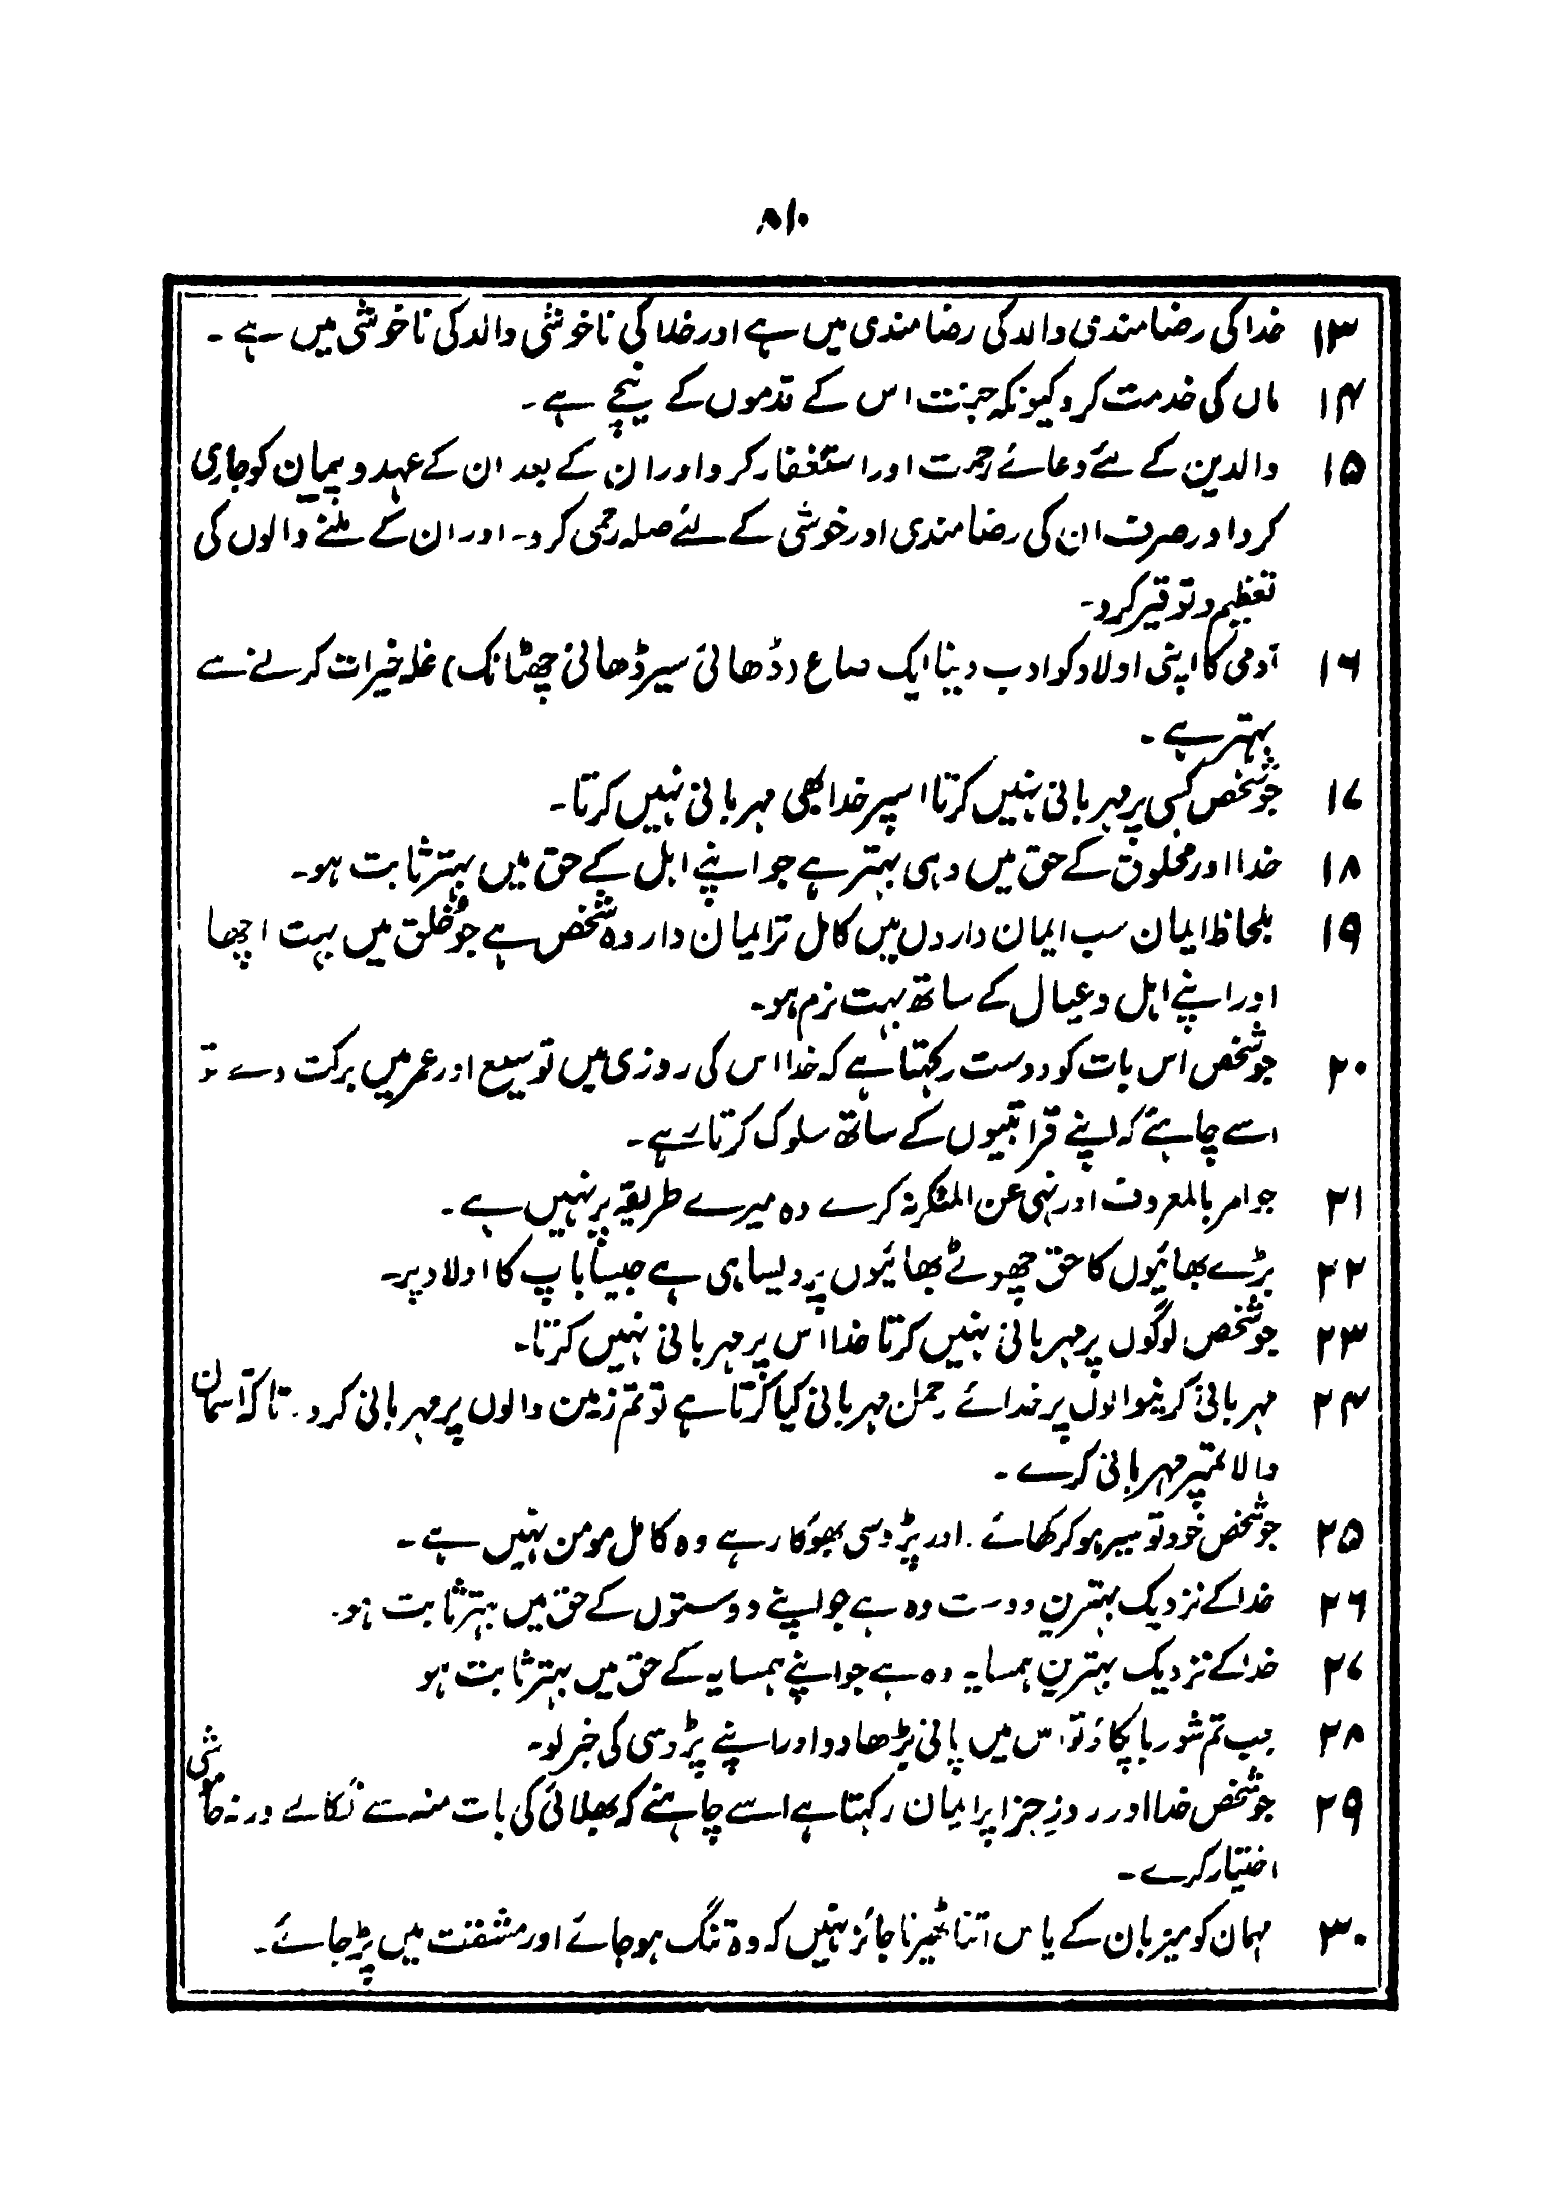 ۸۱۰
۱۳ خدا کی رضامندی والد کی رضامندی میں ہے اور خدا کی ناخوشی والد کی ناخوشی میں ہے ۔
۱۴ ماں کی خدمت کرو کیونکہ جنت اس کے قدموں کے نیچے ہے ۔
۱۵ والدین کے لئے دعائے رحمت اور استغفار کرو اور ان کے بعد ان کے عہد و پیمان کو جاری
کرو اور صرف ان کی رضامندی اور خوشی کے لئے صلہ رحمی کرو۔ اور ان کے ملنے والوں کی
تعظیم و توقیر کرو۔
۱۶ آدمی کا اپنی اولاد کو ادب دینا ایک صاع (ڈھائی سیر ڈھائی چھٹانک) غلہ خیرات کرنے سے
بہتر ہے ۔
۱۷ جو شخص کسی پر مہربانی نہیں کرتا اسپر خدا بھی مہربانی نہیں کرتا۔
۱۸ خدا اور مخلوق کے حق میں وہی بہتر ہے جو اپنے اہل کے حق میں بہتر ثابت ہو۔
۱۹ بلحاظ ایمان سب ایمان داروں میں کامل تر ایمان دار وہ شخص ہے جو خُلق میں بہت اچھا
اور اپنے اہل و عیال کے ساتھ بہت نرم ہو۔
۲۰ جو شخص اس بات کو دوست رکہتا ہے کہ خدا اس کی روزی میں توسیع اور عمر میں برکت دے تو
اسے چاہئے کہ اپنے قرابتیوں کے ساتھ سلوک کرتا رہے۔
۲۱ جو امر بالمعروف اور نہی عن المنکر نہ کرے وہ میرے طریقہ پر نہیں ہے ۔
۲۲ بڑے بھائیوں کا حق چھوٹے بھائیوں پر ویسا ہی ہے جیسا باپ کا اولاد پر۔
۲۳ جو شخص لوگوں پر مہربانی نہیں کرتا خدا اس پر مہربانی نہیں کرتا۔
۲۴ مہربانی کرنیوالوں پر خدائے رحمٰن مہربانی کیا کرتا ہے تو تم زمین والوں پر مہربانی کرو۔ تاکہ آسمان
والا تمپر مہربانی کرے ۔
۲۵ جو شخص خود تو سیر ہو کر کھائے ۔ اور پڑوسی بھوکا رہے وہ کامل مومن نہیں ہے ۔
۲۶ خدا کے نزدیک بہترین دوست وہ ہے جو اپنے دوستوں کے حق میں بہتر ثابت ہو۔
۲۷ خدا کے نزدیک بہترین ہمسایہ وہ ہے جو اپنے ہمسایہ کے حق میں بہتر ثابت ہو
۲۸ جب تم شوربا پکاؤ تو اس میں پانی بڑھا دو اور اپنے پڑوسی کی خبر لو۔
۲۹ جو شخص خدا اور روزِ جزا پر ایمان رکہتا ہے اسے چاہئے کہ بھلائی کی بات منہ سے نکالے ورنہ خاموشی
اختیار کرے ۔
۳۰ مہمان کو میزبان کے پاس اتنا ٹھیرنا جائز نہیں کہ وہ تنگ ہو جائے اور مشقت میں پڑ جائے ۔